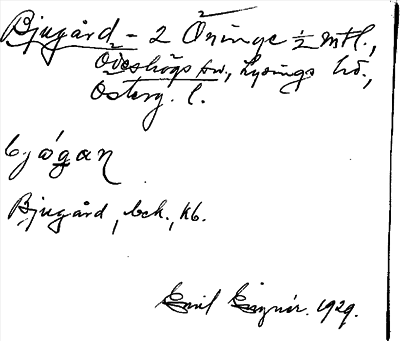 Bjugård – 2 Öninge ½ mtl.,
Ödeshögs sn, Lysings hd.,
Österg. l.
bjógan
Bjugård, bek., kb.
Emil 1929.